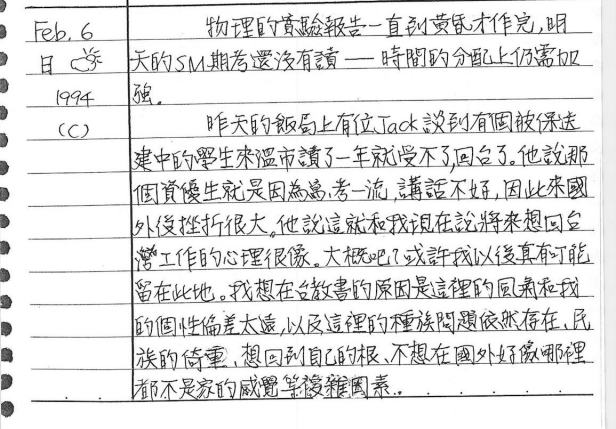 Feb. 6 物理的實驗報告一直到黃昏才作完,明
日 天的SM期考還沒有讀——時間的分配上仍需加
1994 強。
(C) 昨天的飯局上有位Jack談到有個被保送
建中的學生來溫市讀了一年就受不了,回台了。他說那
個資優生就是因為 考一流,講話不好,因此來國
外後挫折很大。他說這就和我現在說將來想回台
灣工作的心理很像。大概吧?或許我以後真有可能
留在此地。我想在台教書的原因是這裡的風氣和我
的個性偏差太遠,以及這裡的種族問題依然存在、民
族的倚重、想回到自己的根、不想在國外好像哪裡
都不是家的感覺等複雜因素..